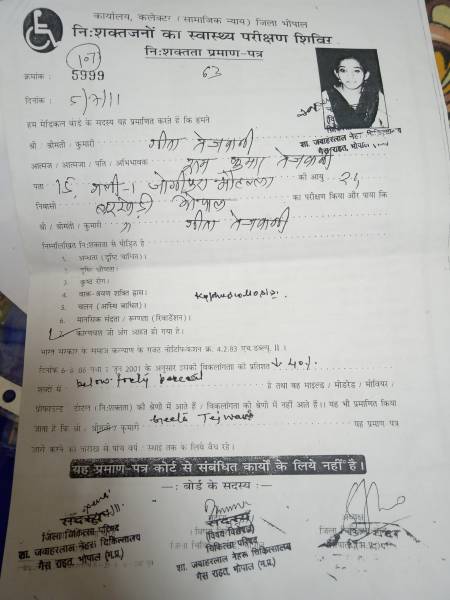 कार्यालय, कलेक्टर (सामाजिक न्याय) जिला भोपाल
निःशक्तजनों का स्वास्थ्य परीक्षण शिविर
निःशक्तता प्रमाण-पत्र
क्रमांक : 5999
63
दिनांक : 5/7/11
हम मेडिकल बोर्ड के सदस्य यह प्रमाणित करते हैं कि हमने
शा. जवाहरलाल नेहरू चिकित्सालय
गैस राहत, भोपाल
श्री श्रीमती / कुमारी गीता तेजवानी
आत्मज / आत्मजा / पति / अभिभावक राम कुमार तेजवानी
पता 15, गली-1 जोगीपुरा मोहल्ला की आयु 24
निवासी बरखेड़ी भोपाल का परीक्षण किया और पाया कि
श्री / श्रीमती / कुमारी गीता तेजवानी
निम्नलिखित निःशक्तता से पीड़ित है
1. अन्धता (दृष्टि बाधित)।
2. दृष्टि क्षीणता।
3. कुष्ठ रोग।
4. वाक-श्रवण शक्ति ह्रास।
5. चलन (अस्थि बाधित)।
6. मानसिक मंदता / रूग्णता (रिटार्डेशन)।
भारत सरकार के समाज कल्याण के गजट नोटिफिकेशन क्र. 4.2.83 एच.डब्ल्यू. II।
2001 के अनुसार इनकी विकलांगता का प्रतिशत ↓ 40%
शब्दों में below forty percent है तथा वह माइल्ड / मोडरेड / सीवियर /
प्रोफाउन्ड टोटल (निःशक्तता) की श्रेणी में आते हैं / विकलांगता की श्रेणी में नहीं आते हैं।। यह भी प्रमाणित किया
जाता है कि श्री / श्रीमती / कुमारी Geeta Tejwani यह प्रमाण पत्र
जारी करने की तारीख से पांच वर्ष / स्थाई तक के लिये वैध रहे।
यह प्रमाण-पत्र कोर्ट से संबंधित कार्यों के लिये नहीं है।
—: बोर्ड के सदस्य :—
सदस्य
जिला चिकित्सा परिषद
शा. जवाहरलाल नेहरू चिकित्सालय
गैस राहत, भोपाल (म.प्र.)
सदस्य
(विषय विशेषज्ञ)
जिला चिकित्सा परिषद
शा. जवाहरलाल नेहरू चिकित्सालय
गैस राहत, भोपाल (म.प्र.)
अध्यक्ष